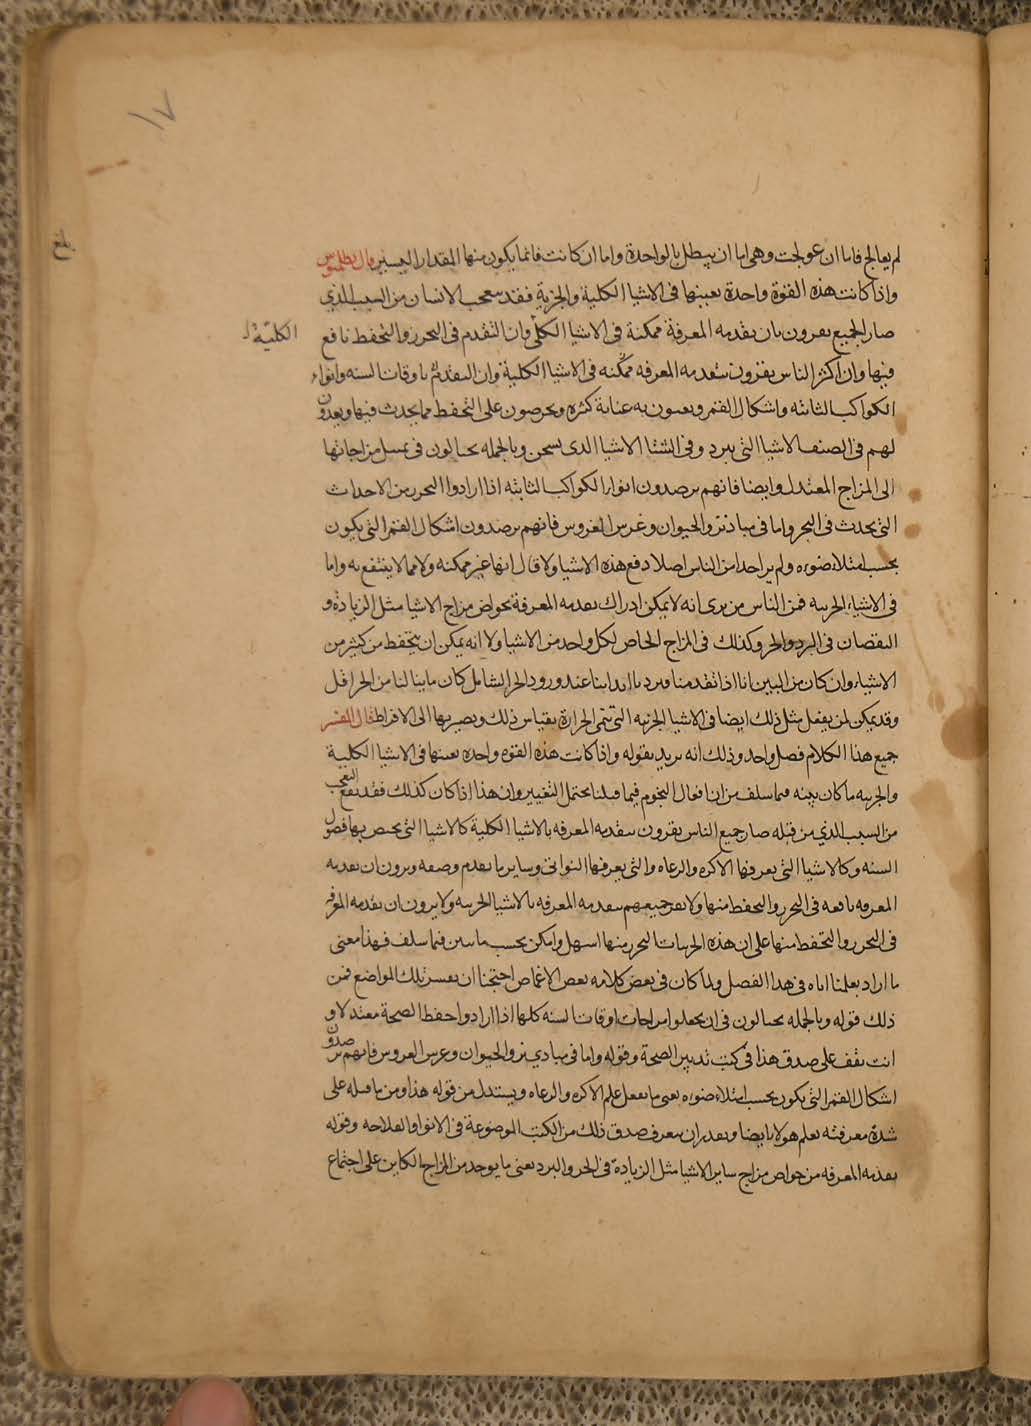 ١٧
بلغ
لم يعالج فاما ان عولجت وهى اما ان يبطل بالواحدة واما ان كانت فانما يكون منها المقدار اليسير قال بطلميوس
واذا كانت هذه القوة واحدة بعينها فى الاشيا الكلية والجزية فقد يتعجب الانسان من السبب الذي
صار الجميع يقرون بان تقدمه المعرفة ممكنة فى الاشيا الكلى وان التقدم فى التحرز والتحفظ نافع
الكلية
فيها وان اكثر الناس يقرون بتقدمه المعرفه ممكنه فى الاشيا الكلية وان التقدم باوقات السنه وانواء
الكواكب الثابته واشكال القمر ويعنون به عناية كثيره ويحرصون على التحفظ مما يحدث فيها ويعدون
لهم فى الصيف الاشيا التى تبرد وفى الشتا الاشيا الذى تسخن وبالجمله يحتالون فى مزاجاتها
الى المزاج المعتدل وايضا فانهم يرصدون انوار الكواكب الثابته اذا ارادوا التحرز من الاحداث
التى يحدث فى البحر واما فى مبادئ نزو الحيوان وغرس الغروس فانهم يرصدون اشكال القمر التى يكون
بحسب امتلاء ضوءه ولم ير احدا من الناس اصلا دفع هذه الاشيا ولا قال انها غير ممكنه ولا مما لا ينتفع به واما
فى الاشياء الجزيه فمن الناس من يرى انه لا يمكن ادراك تقدمه المعرفة بخواص مزاج الاشيا مثل الزيادة و
النقصان فى البرد والحر وكذلك فى المزاج الخاص لكل واحد من الاشيا ولا انه يمكن ان يتحفظ من كثير من
الاشياء وان كان من البين انا اذا تقدمنا فبردنا ابداننا عند ورود الحر الشامل كان ما ينالنا من الحر اقل
وقد يمكن لمن يفعل مثل ذلك ايضا فى الاشيا الجزيه التى تنمى الحرارة بقياس ذلك ويصير بها الى الافراط قال المفسر
جميع هذا الكلام فصل واحد وذلك انه يريد بقوله واذا كانت هذه القوه واحده بعينها فى الاشيا الكلية
والجزيه ما كان بينه فيما سلف من ان افعال النجوم فيما قبلنا يحتمل التغيير وان هذا اذا كان كذلك فقد يقع التعجب
من السبب الذي من قبله صار جميع الناس يقرون بتقدمه المعرفه بالاشيا الكلية كالاشيا التى يختص بها فصول
السنه وكالاشيا التى يعرفها الاكره والرعاه والتى يعرفها النواتى وساير ما تقدم وصفه ويرون ان تقدمه
المعرفه نافعه فى التحرز والتحفظ منها ولا يقر جميعهم بتقدمه المعرفه بالاشيا الجزيه ولا يرون ان تقدمه المعرفه
فى التحرز والتحفظ منها على ان هذه الجزيات التحرز منها اسهل وامكن بحسب ما تبين فيما سلف فهذا معنى
ما اراد بعلمنا اياه فى هذا الفصل ولما كان فى بعض كلامه بعض الاغماض احتجنا ان نفسر تلك المواضع فمن
ذلك قوله وبالجمله يحتالون فى ان يجعلوا مزاجات اوقات السنه كلها اذا ارادوا حفظ الصحة معتدلا و
انت تقف على صدق هذا فى كتب تدبير الصحة وقوله واما فى مبادي نزو الحيوان وغرس الغروس فانهم يرصدون
اشكال القمر التى يكون بحسب امتلاء ضوءه يعنى ما يفعل علم الاكره والرعاه ويستدل من قوله هذا ومن ما قبله على
شدة معرفته بعلم هولا ايضا وتقدر ان تعرف صدق ذلك من الكتب الموضوعة فى الانوا والفلاحه وقوله
تقدمه المعرفه من خواص مزاج ساير الاشيا مثل الزيادة فى الحر والبرد يعنى ما يوجد من المزاج الكاين على اجتماع